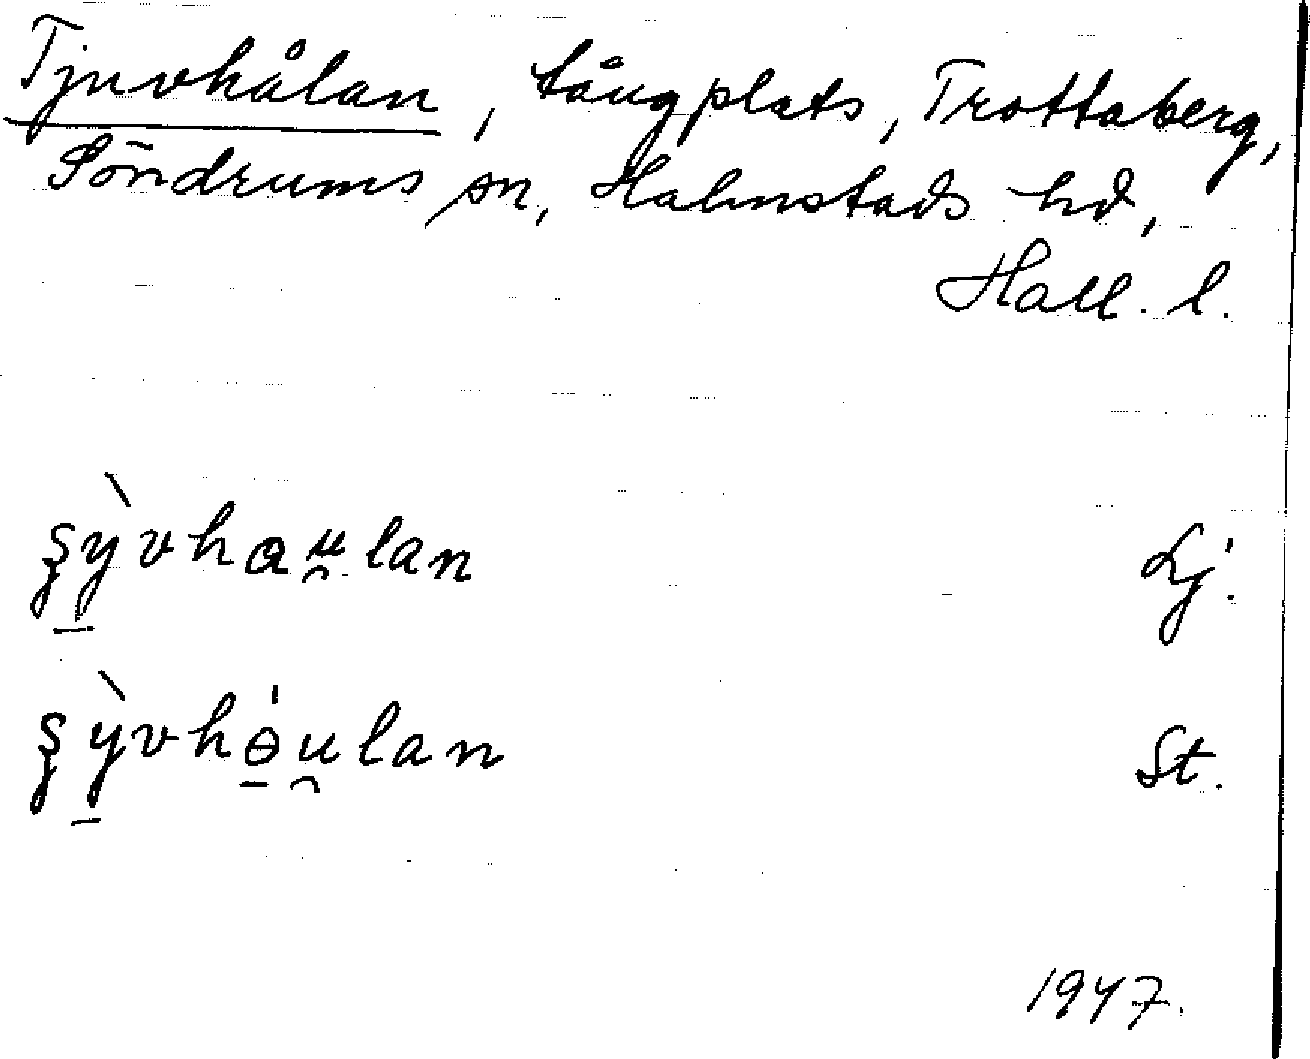 Tjuvhålan, tångplats, Trottaberg,
Söndrums sn, Halmstads hd,
Hall. l.
şỳ̱vhau̯lan Lj.
şỳ̱vhɵ̱́u̯lan St.
1947.